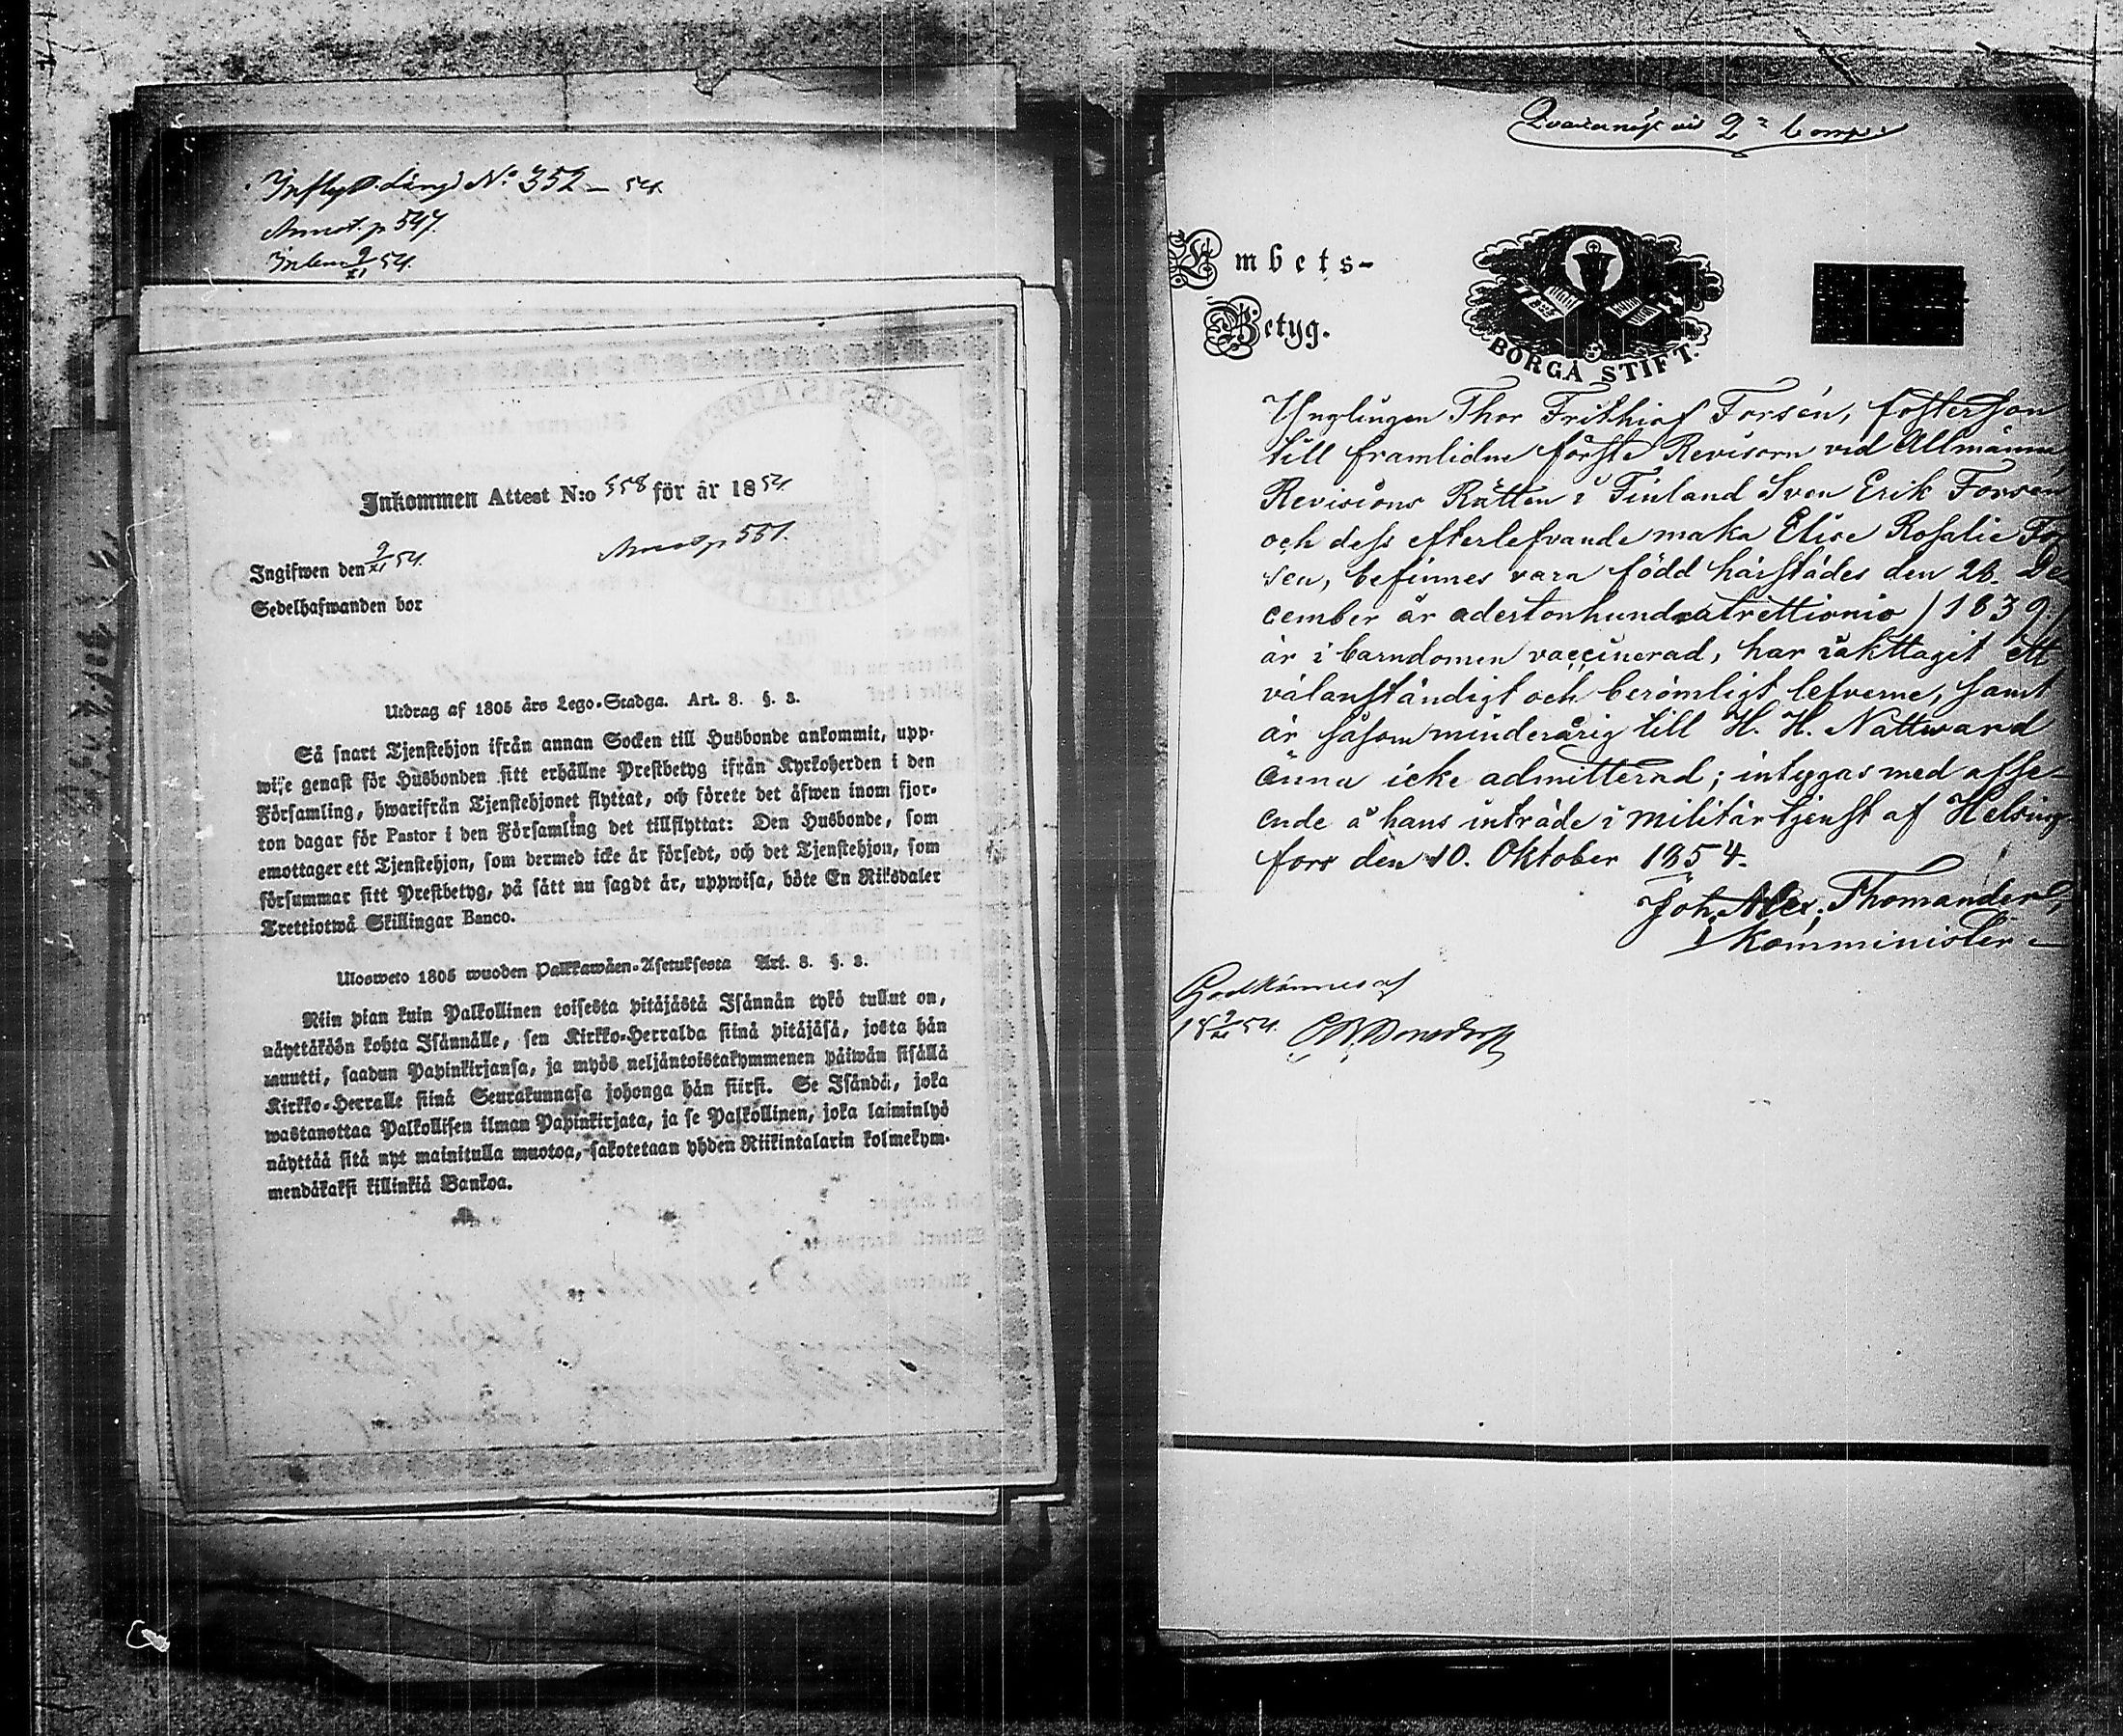 Inflyttn. Längd No 352 - 54.
Annot. p 547.
Inkom 9/XI 54.
Inkommen Attest N:o 558 för år 1854.
Annot p 551.
Ingifwen den 9/XI 54.
Sedelhafwanden bor
Utdrag af 1805 års Lego-Stadga. Art. 8. §. 3.
Så snart Tjenstehjon ifrån annan Socken till Husbonde ankommit, upp-
wise genast för Husbonden sitt erhållne Prestbetyg ifrån Kyrkoherden i den
Församling, hwarifrån Tjenstehjonet flyttat, och förete det äfwen inom fjor-
ton dagar för Pastor i den Församling det tillflyttat: Den Husbonde, som
emottager ett Tjenstehjon, som dermed icke är försedt, och det Tjenstehjon, som
försummar sitt Prestbetyg, på sätt nu sagdt är, uppwisa, böte En Riksdaler
Trettiotwå Skillingar Banco.
Ulosweto 1805 wuoden Palkkawäen-Asetuksesta Art. 8. §. 3.
Niin pian kuin Palkollinen toisesta pitäjästä Isännän tykö tullut on,
näyttäköön kohta Isännälle, sen Kirkko-Herralda siinä pitäjäsä, josta hän
muutti, saadun Papinkirjansa, ja myös neljäntoistakymmenen päiwän sisällä
Kirkko-Herralle siinä Seurakunnasa johonga hän siirsi. Se Isändä, joka
wastanottaa Palkollisen ilman Papinkirjata, ja se Palkollinen, joka laiminlyö
näyttää sitä nyt mainitulla muotoa, sakotetaan yhden Riikintalarin kolmekym-
mendäkaksi killinkiä Bankoa.
vid 2a Comp.
Embets-
Betyg.
BORGÅ STIFT.
Ynglingen Thor Frithiof Forsén, fosterson
till framlidne förste Revisorn vid Allmänna
Revisions Rätten i Finland Sven Erik Forsen
och dess efterlefvande maka Elise Rosalie For
sen, befinnes vara född härstädes den 26. De
cember år adertonhundratrettionio /1839./
är i barndomen vaccinerad, har iakttagit ett
välanständigt och berömligt lefverne, samt
är såsom minderårig till H. H. Nattward
ännu icke admitterad; intygas med afse-
ende å hans inträde i militär tjenst af Helsing-
fors den 10. Oktober 1854.
Joh. Alex. Thomander,
Komminister
Godkännes af
18 9/XI 54. Bonsdorff